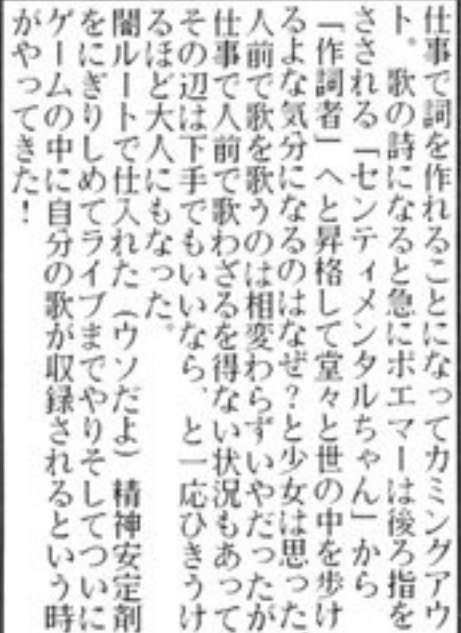 仕事で詞を作れることになってカミングアウ
ト。歌の詩になると急にポエマーは後ろ指を
さされる「センティメンタルちゃん」から
「作詞者」へと昇格して堂々と世の中を歩け
るよな気分になるのはなぜ?と少女は思った
人前で歌を歌うのは相変わらずいやだったが
仕事で人前で歌わざるを得ない状況もあって
その辺は下手でもいいなら、と一応ひきうけ
るほど大人にもなった。
闇ルートで仕入れた(ウソだよ)精神安定剤
をにぎりしめてライブまでやりそしてついに
ゲームの中に自分の歌が収録されるという時
がやってきた!